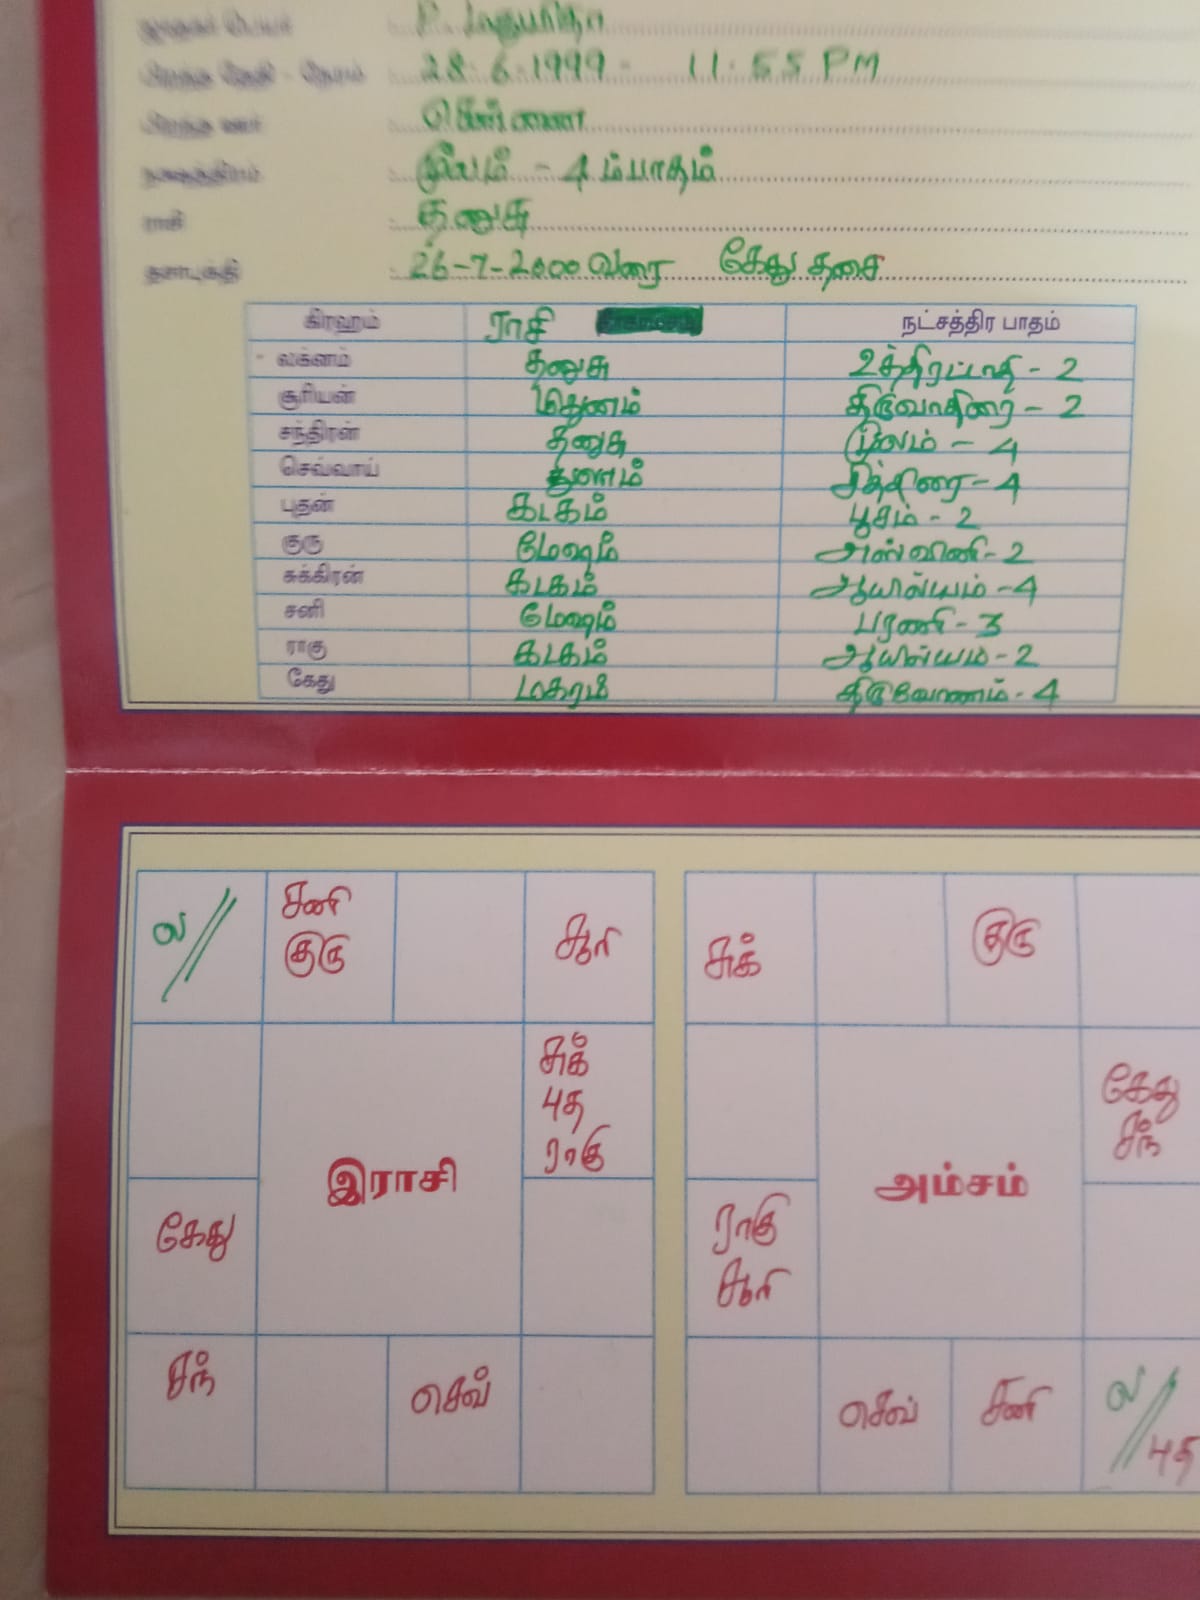 28.6.1999- 11.55 PM
சென்னை
மூலம் - 4 ம்பாதம்
ராசி தனுசு
தசாபுக்தி 26-7-2000 வரை கேது தசை
கிரஹம் ராசி நட்சத்திர பாதம்
லக்னம் தனுசு உத்திரட்டாதி - 2
சூரியன் மிதுனம் திருவாதிரை - 2
சந்திரன் தனுசு மூலம் - 4
செவ்வாய் துலாம் சித்திரை - 4
புதன் கடகம் பூசம் - 2
குரு மேஷம் அஸ்வினி - 2
சுக்கிரன் கடகம் ஆயில்யம் - 4
சனி மேஷம் பரணி - 3
ராகு கடகம் ஆயில்யம் - 2
கேது மகரம் திருவோணம் - 4
ல//
சனி
குரு
சூரி
சுக்
புத
ராகு
கேது
இராசி
சந்
செவ்
சுக்
குரு
கேது
சந்
ராகு
சூரி
அம்சம்
செவ்
சனி
ல//
புத